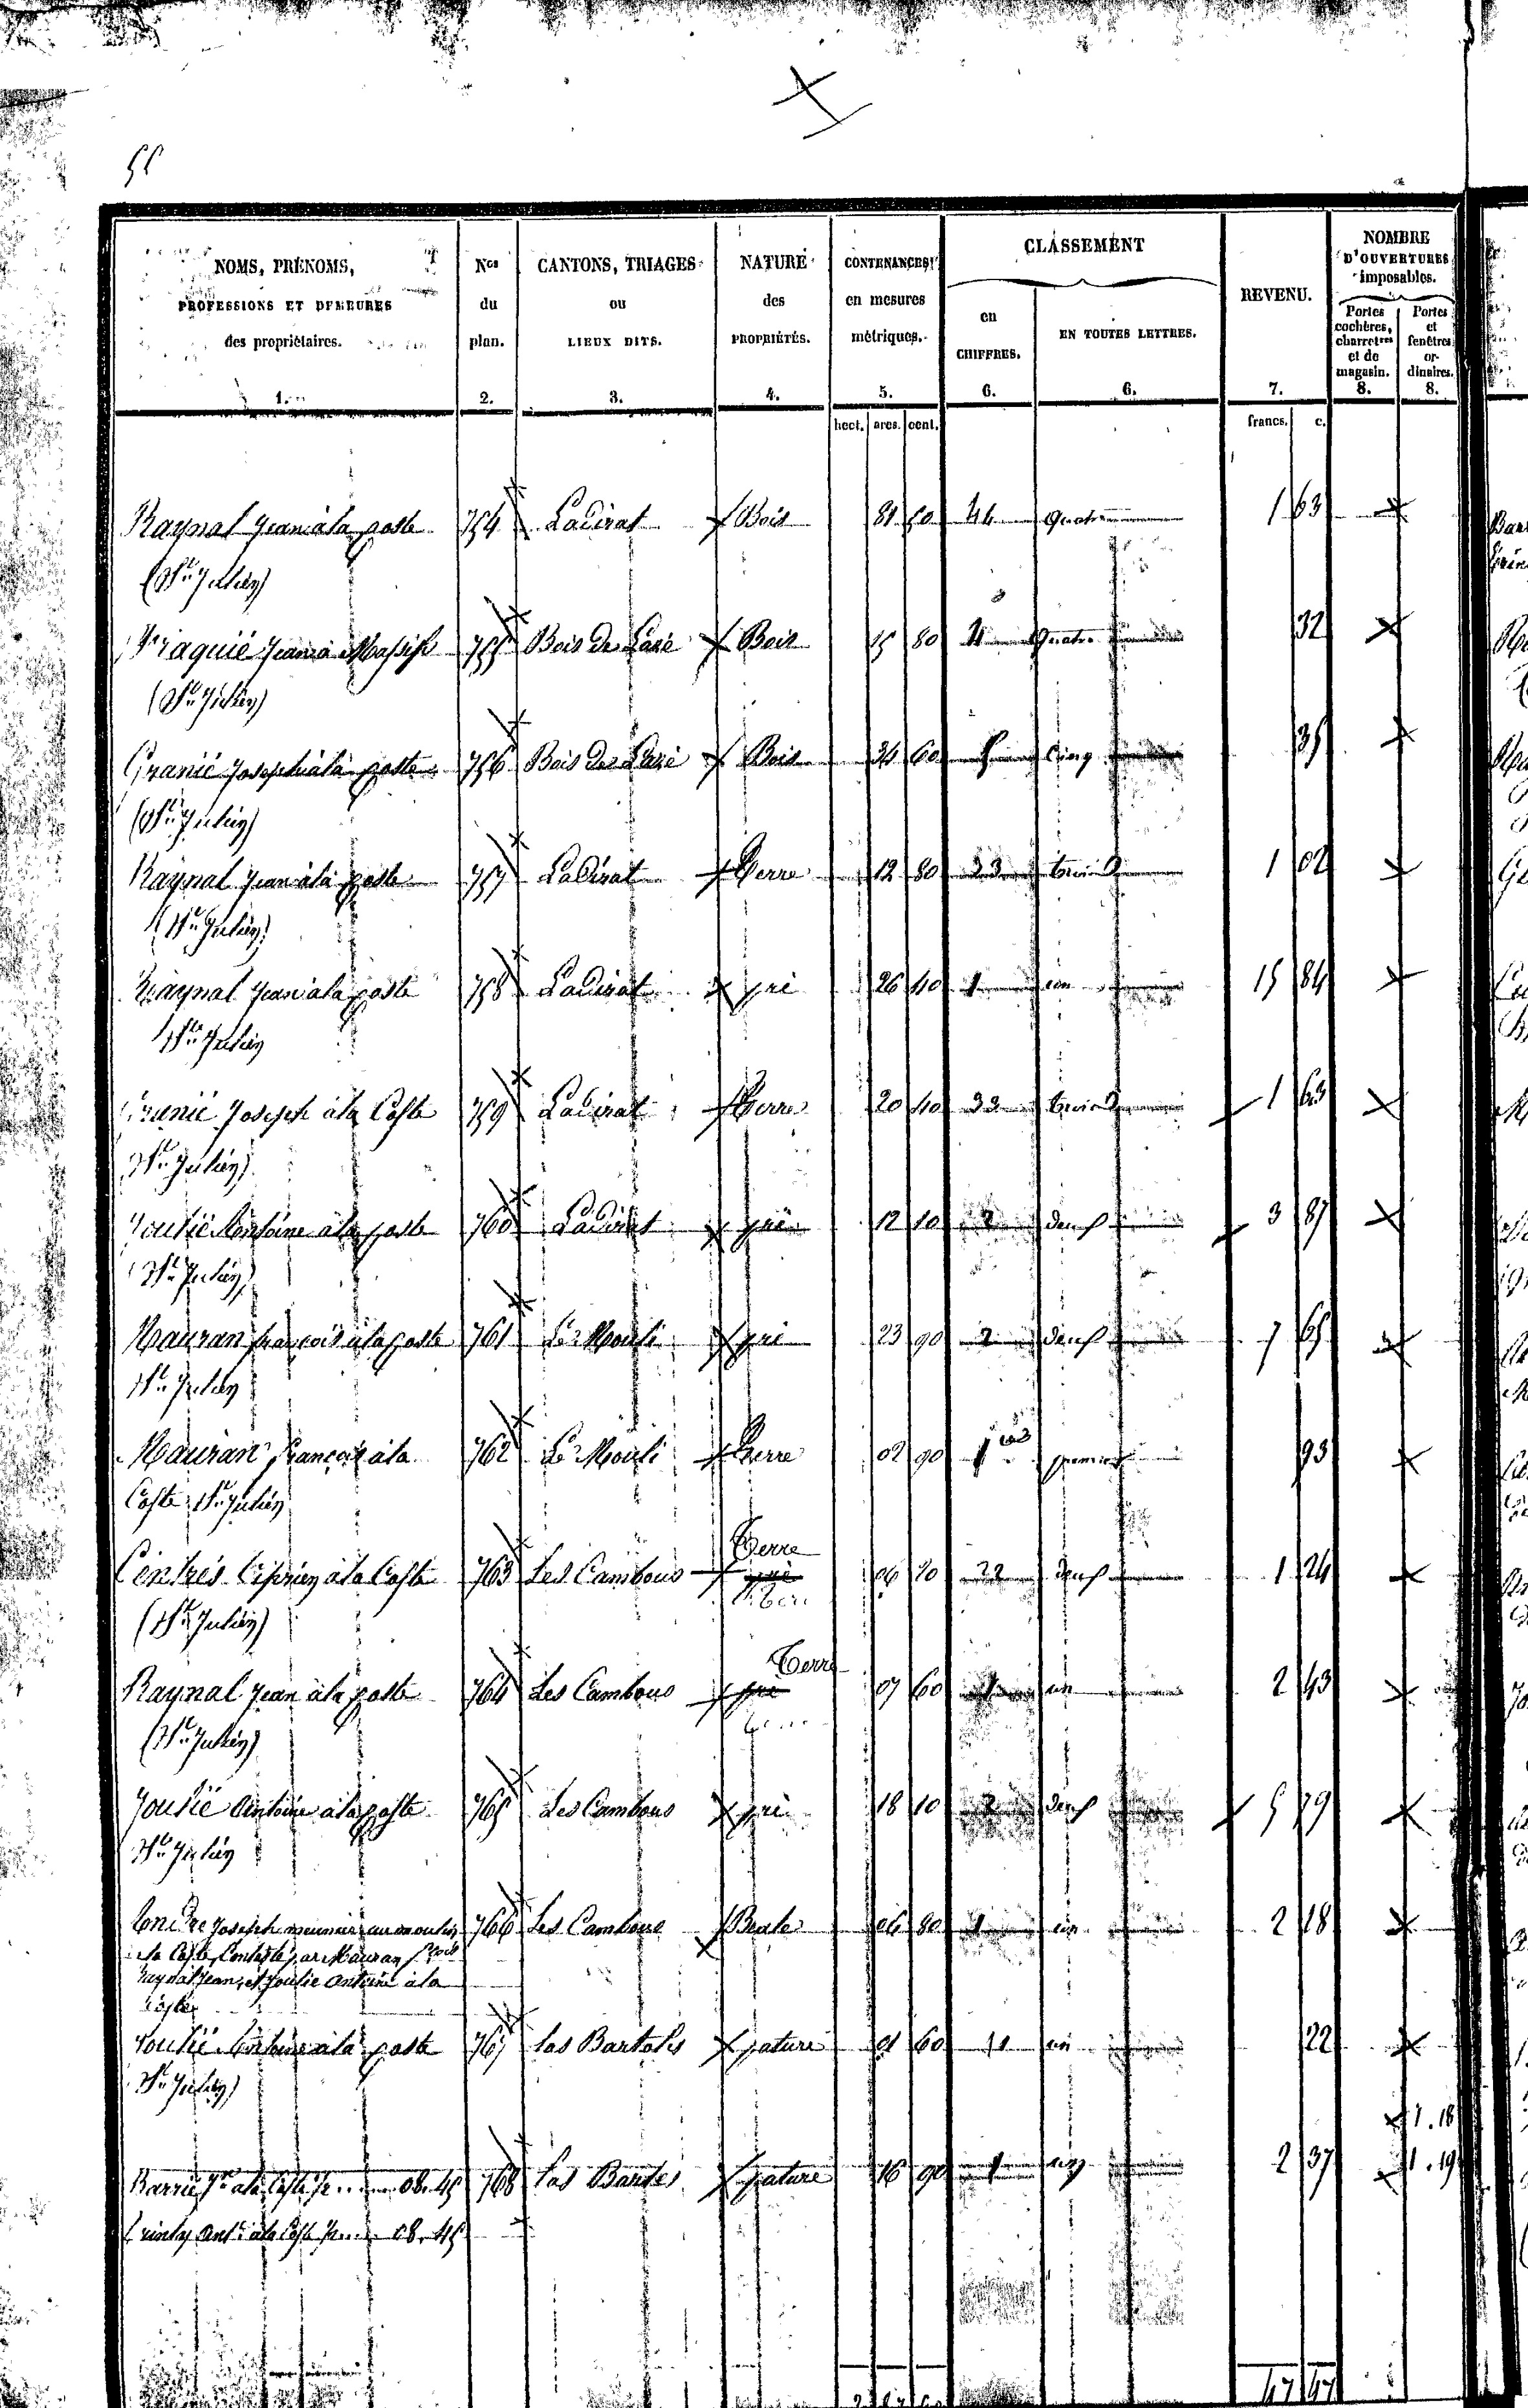 55
NOMS, PRÉNOMS, PROFESSIONS ET DEMEURES des propriétaires. 1.
Nos du plan. 2.
CANTONS, TRIAGES ou LIEUX DITS. 3.
NATURE des PROPRIÉTÉS. 4.
CONTENANCES en mesures métriques. 5.
CLASSEMENT
en CHIFFRES. 6.
EN TOUTES LETTRES. 6.
REVENU. 7.
NOMBRE D'OUVERTURES imposables.
Portes cochères, charretres et de magasin. 8.
Portes et fenêtres ordinaires. 8.
hect. ares. cent. francs. c.
Raynal Jean à la Coste 754 Ladirat Bois 81 60 4 quatre 1 63
(Ste Julien)
Jean à 755 Bois de Bois 15 80 4 quatre 32
(Ste Julien)
Granié Joseph à la Coste 756 Bois de Bois 34 60 5 cinq 35
(Ste Julien)
Raynal Jean à la Coste 757 Ladirat Terre 12 80 3 trois 1 02
(Ste Julien)
Raynal Jean à la Coste 758 Ladirat pré 26 40 1 un 15 84
Ste Julien
Granié Joseph à la Coste 759 Ladirat Terre 20 40 3 trois 1 63
Ste Julien)
Joulié Antoine à la Coste 760 Ladirat pré 12 10 2 deux 3 87
(Ste Julien)
Mauran françois à la Coste 761 Le Mouli pré 23 90 2 deux 7 65
Ste Julien
Mauran françois à la 762 Le Mouli Terre 02 90 1 premier 93
Coste Ste Julien
Terre
Cintrés Ciprien à la Coste 763 Les Cambous pré 06 20 2 deux 1 24
(Ste Julien)
Terre
Raynal Jean à la Coste 764 Les Cambous pré 07 60 1 un 2 43
(Ste Julien)
Joulié Antoine à la Coste 765 Les Cambous pré 18 10 2 deux 5 79
Ste Julien
Joseph meunier au moulin 766 Les Cambous 06 80 1 un 2 18
la Coste Contesté par Mauran
Raynal Jean, et Joulié Antoine à la
Coste
Joulié Antoine à la Coste 767 Las pature 01 60 1 un 22
Ste Julien)
1.18
à la Coste 08.45 768 Las pature 16 90 1 un 2 37 1.19
à la Coste 08.45
47 47